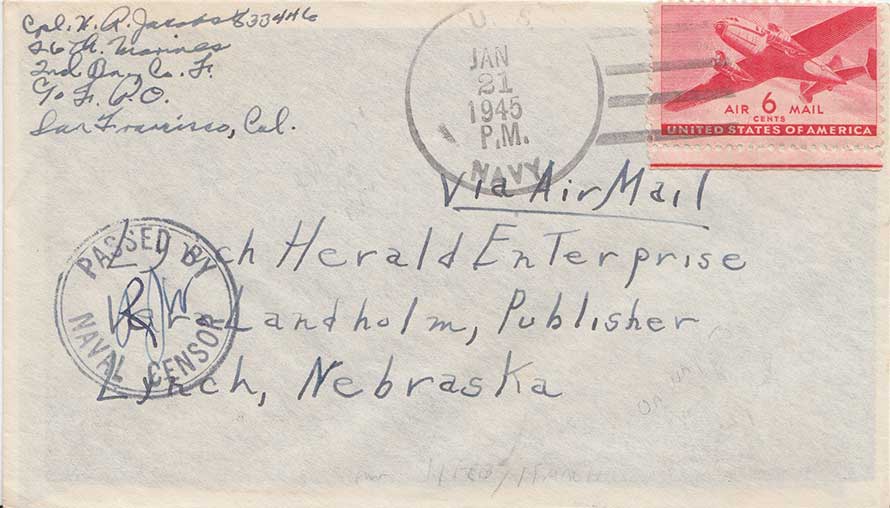 Cpl. H. R. Jacobs 833446
26th. Marines
2nd Bn, Co. F.
c/o F. P. O.
San Francisco, Cal.
U. S.
JAN
21
1945
P.M.
NAVY
AIR 6 MAIL
CENTS
UNITED STATES OF AMERICA
Via Air Mail
Lynch Herald Enterprise
Vera Landholm, Publisher
Lynch, Nebraska
PASSED BY
NAVAL CENSOR